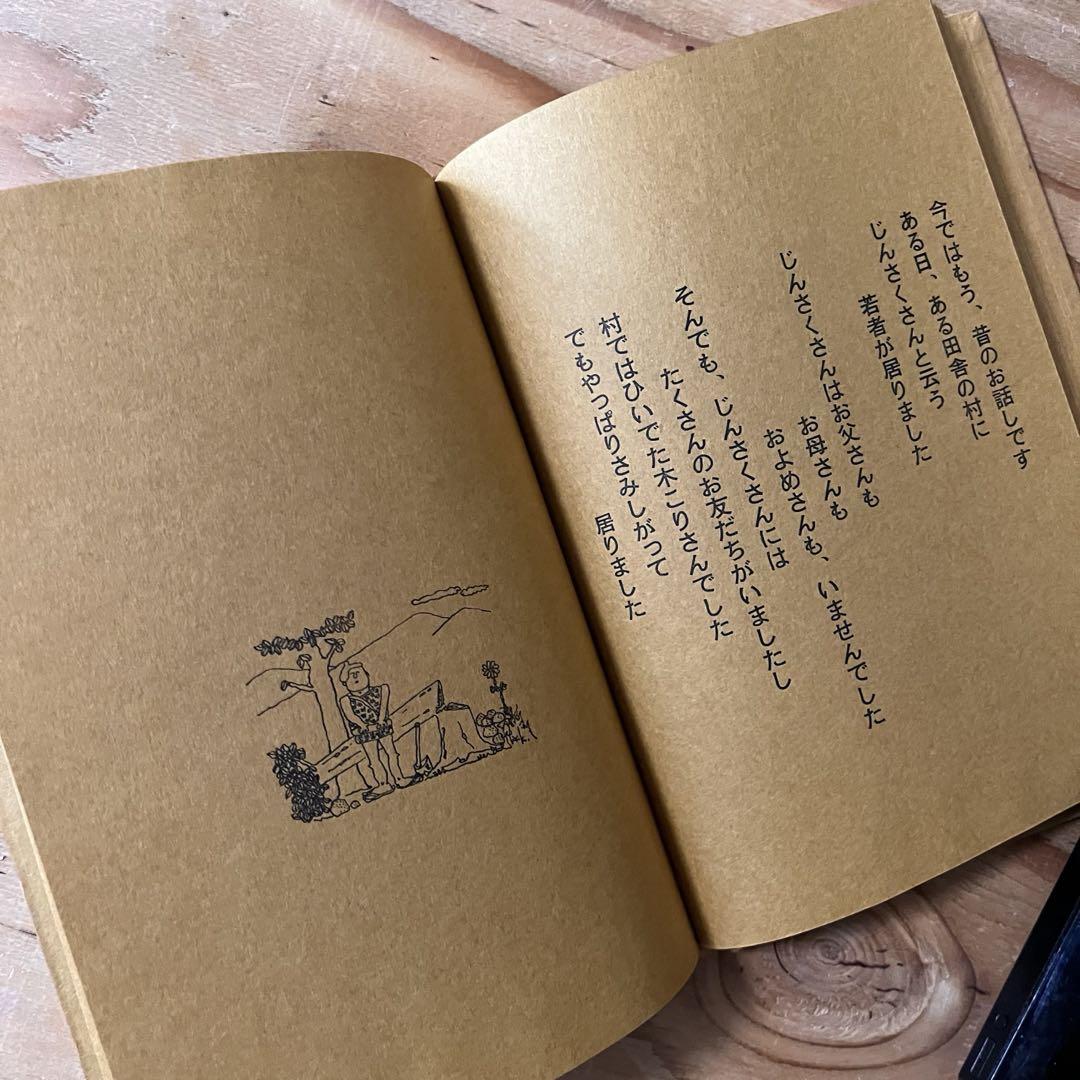 今ではもう、昔のお話しです
ある日、ある田舎の村に
じんさくさんと云う
若者が居りました
じんさくさんはお父さんも
お母さんも
およめさんも、いませんでした
そんでも、じんさくさんには
たくさんのお友だちがいましたし
村ではひいでた木こりさんでした
でもやっぱりさみしがって
居りました